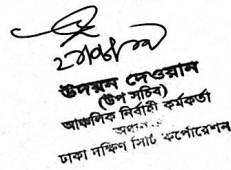 উদয়ন দেওয়ান
(উপ সচিব)
আঞ্চলিক নির্বাহী কর্মকর্তা
ঢাকা দক্ষিণ সিটি কর্পোরেশন